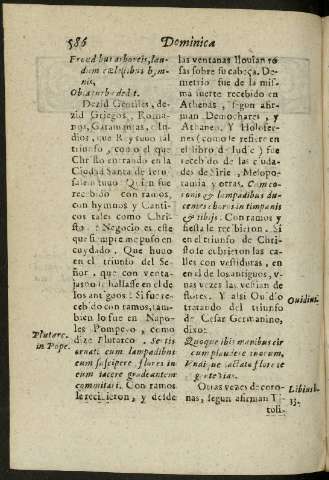 586
Dominica
Frondibus arboreis, lau-
dum cælestibus hym-
nis,
Obiatur
Dezid Gentiles, de-
zid Griegos, Roma-
nos, Garamantas, e In-
dios, que Rey tuuo tal
triunfo, como el que
Christo entrando en la
Ciudad Santa de Ieru-
salem huuo? Quien fue
recebido con ramos,
con hymnos y Canti-
cos tales como Chris-
to? Negocio es este
que siempre me puso en
cuydado. Que huuo
en el triunfo del Se-
ñor, que con venta-
jas no se hallasse en el de
los antiguos? Si fue re-
cebido con ramos, tam-
bien lo fue en Napo-
les Pompeyo, como
dize Plutarco. Sertis
ornati cum lampadibus
eum suscipere, flores in
eum iacere gradeuntem
comitati. Con ramos
le recibieron, y desde
Plutarc.
in Pope.
las ventanas llouian ro
sas sobre su cabeça. De-
metrio fue de la mis-
ma suerte recebido en
Athenas, segun afir-
man Demochares, y
Athaneo. Y Holofer-
nes (como se refiere en
el libro de Iudic) fue
recebido de las ciuda-
des de Sirie, Melopo-
tamia y otras. Cum co-
ronis & lampadibus du-
centes choros in timpanis
& tibijs. Con ramos y
fiesta le recibieron. Si
en el triunfo de Chri-
sto le cubrieron las ca-
lles con vestiduras, en
en el de los antiguos, v-
nas vezes las vestian de
flores. Y assi Ouidio
tratando del triunfo
de Cesar Germanino,
dixo:
Quoque ibis manibus cir
cumplaudere tuorum,
Vndique iactato flore te
gente vias.
Otras vezes de coro-
nas, segun afirman Ti-
tosli-
Ouidius.
Libius l.
33.